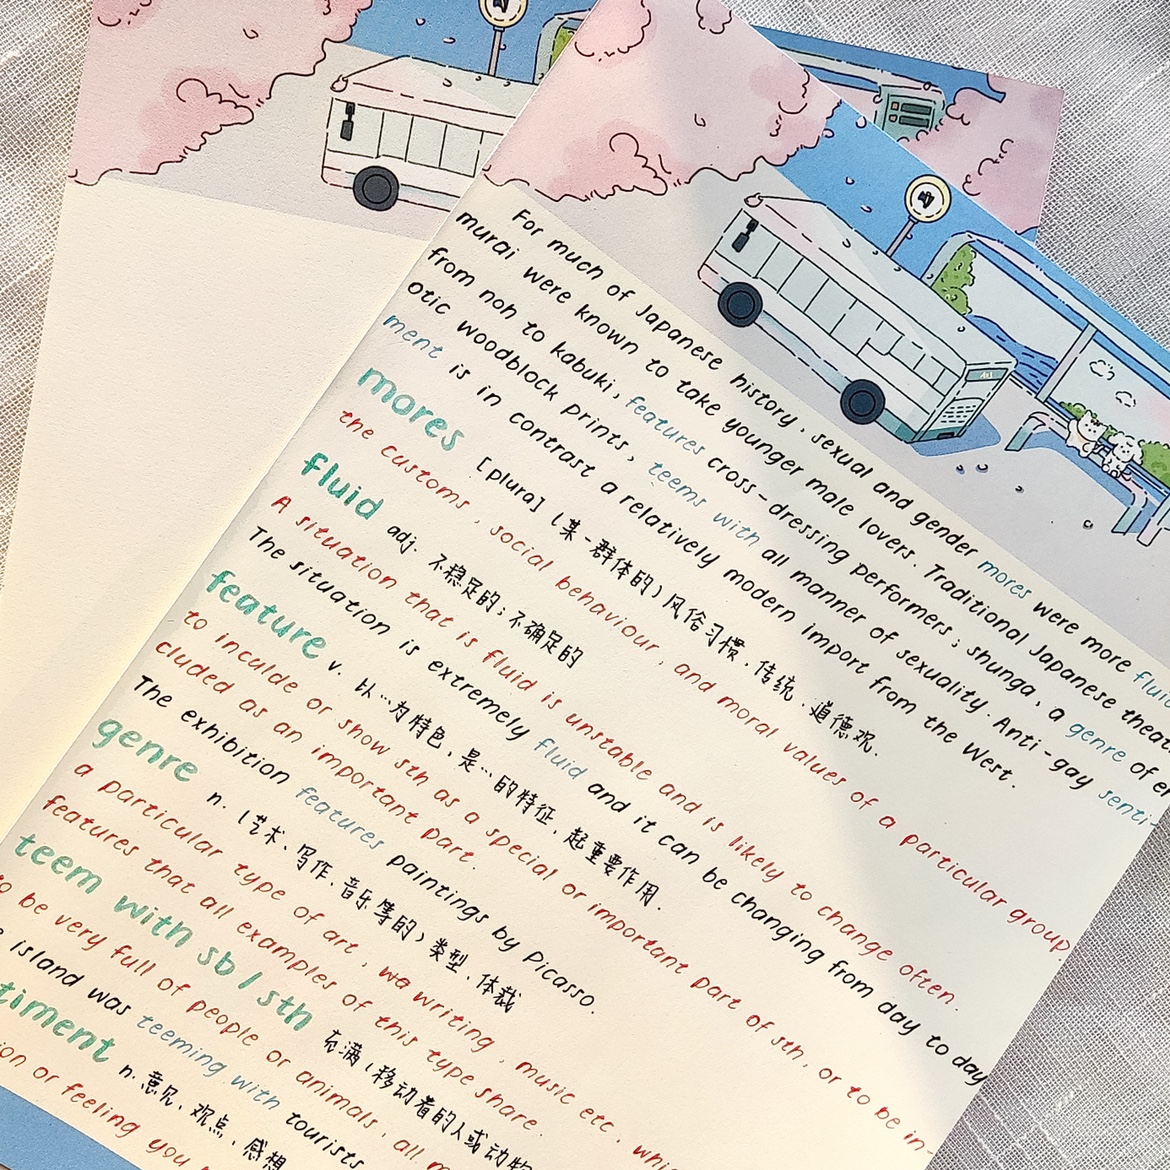 For much of Japanese history, sexual and gender mores were more
murai were known to take younger male lovers. Traditional Japanese
from noh to kabuki, features cross-dressing performers; shunga, a genre of
otic woodblock prints, teems with all manner of sexuality. Anti-gay
ment is in contrast a relatively modern import from the West.
mores [plura] (某一群体的)风俗习惯、传统、道德观.
the customs, social behaviour, and moral values of a particular group.
fluid adj. 不稳定的;不确定的
A situation that is fluid is unstable and is likely to change often.
The situation is extremely fluid and it can be changing from day to day
feature v. 以…为特色,是…的特征,起重要作用.
to inculde or show sth as a special or important part of sth, or to be in-
cluded as an important part.
The exhibition features paintings by Picasso.
genre n. (艺术、写作、音乐等的)类型、体裁
a particular type of art, writing, music etc, which
features that all examples of this type share.
teem with sb/sth 充满(移动着的人或动物
to be very full of people or animals, all
island was teeming with tourists
timent n. 意见、观点、感想
or feeling you